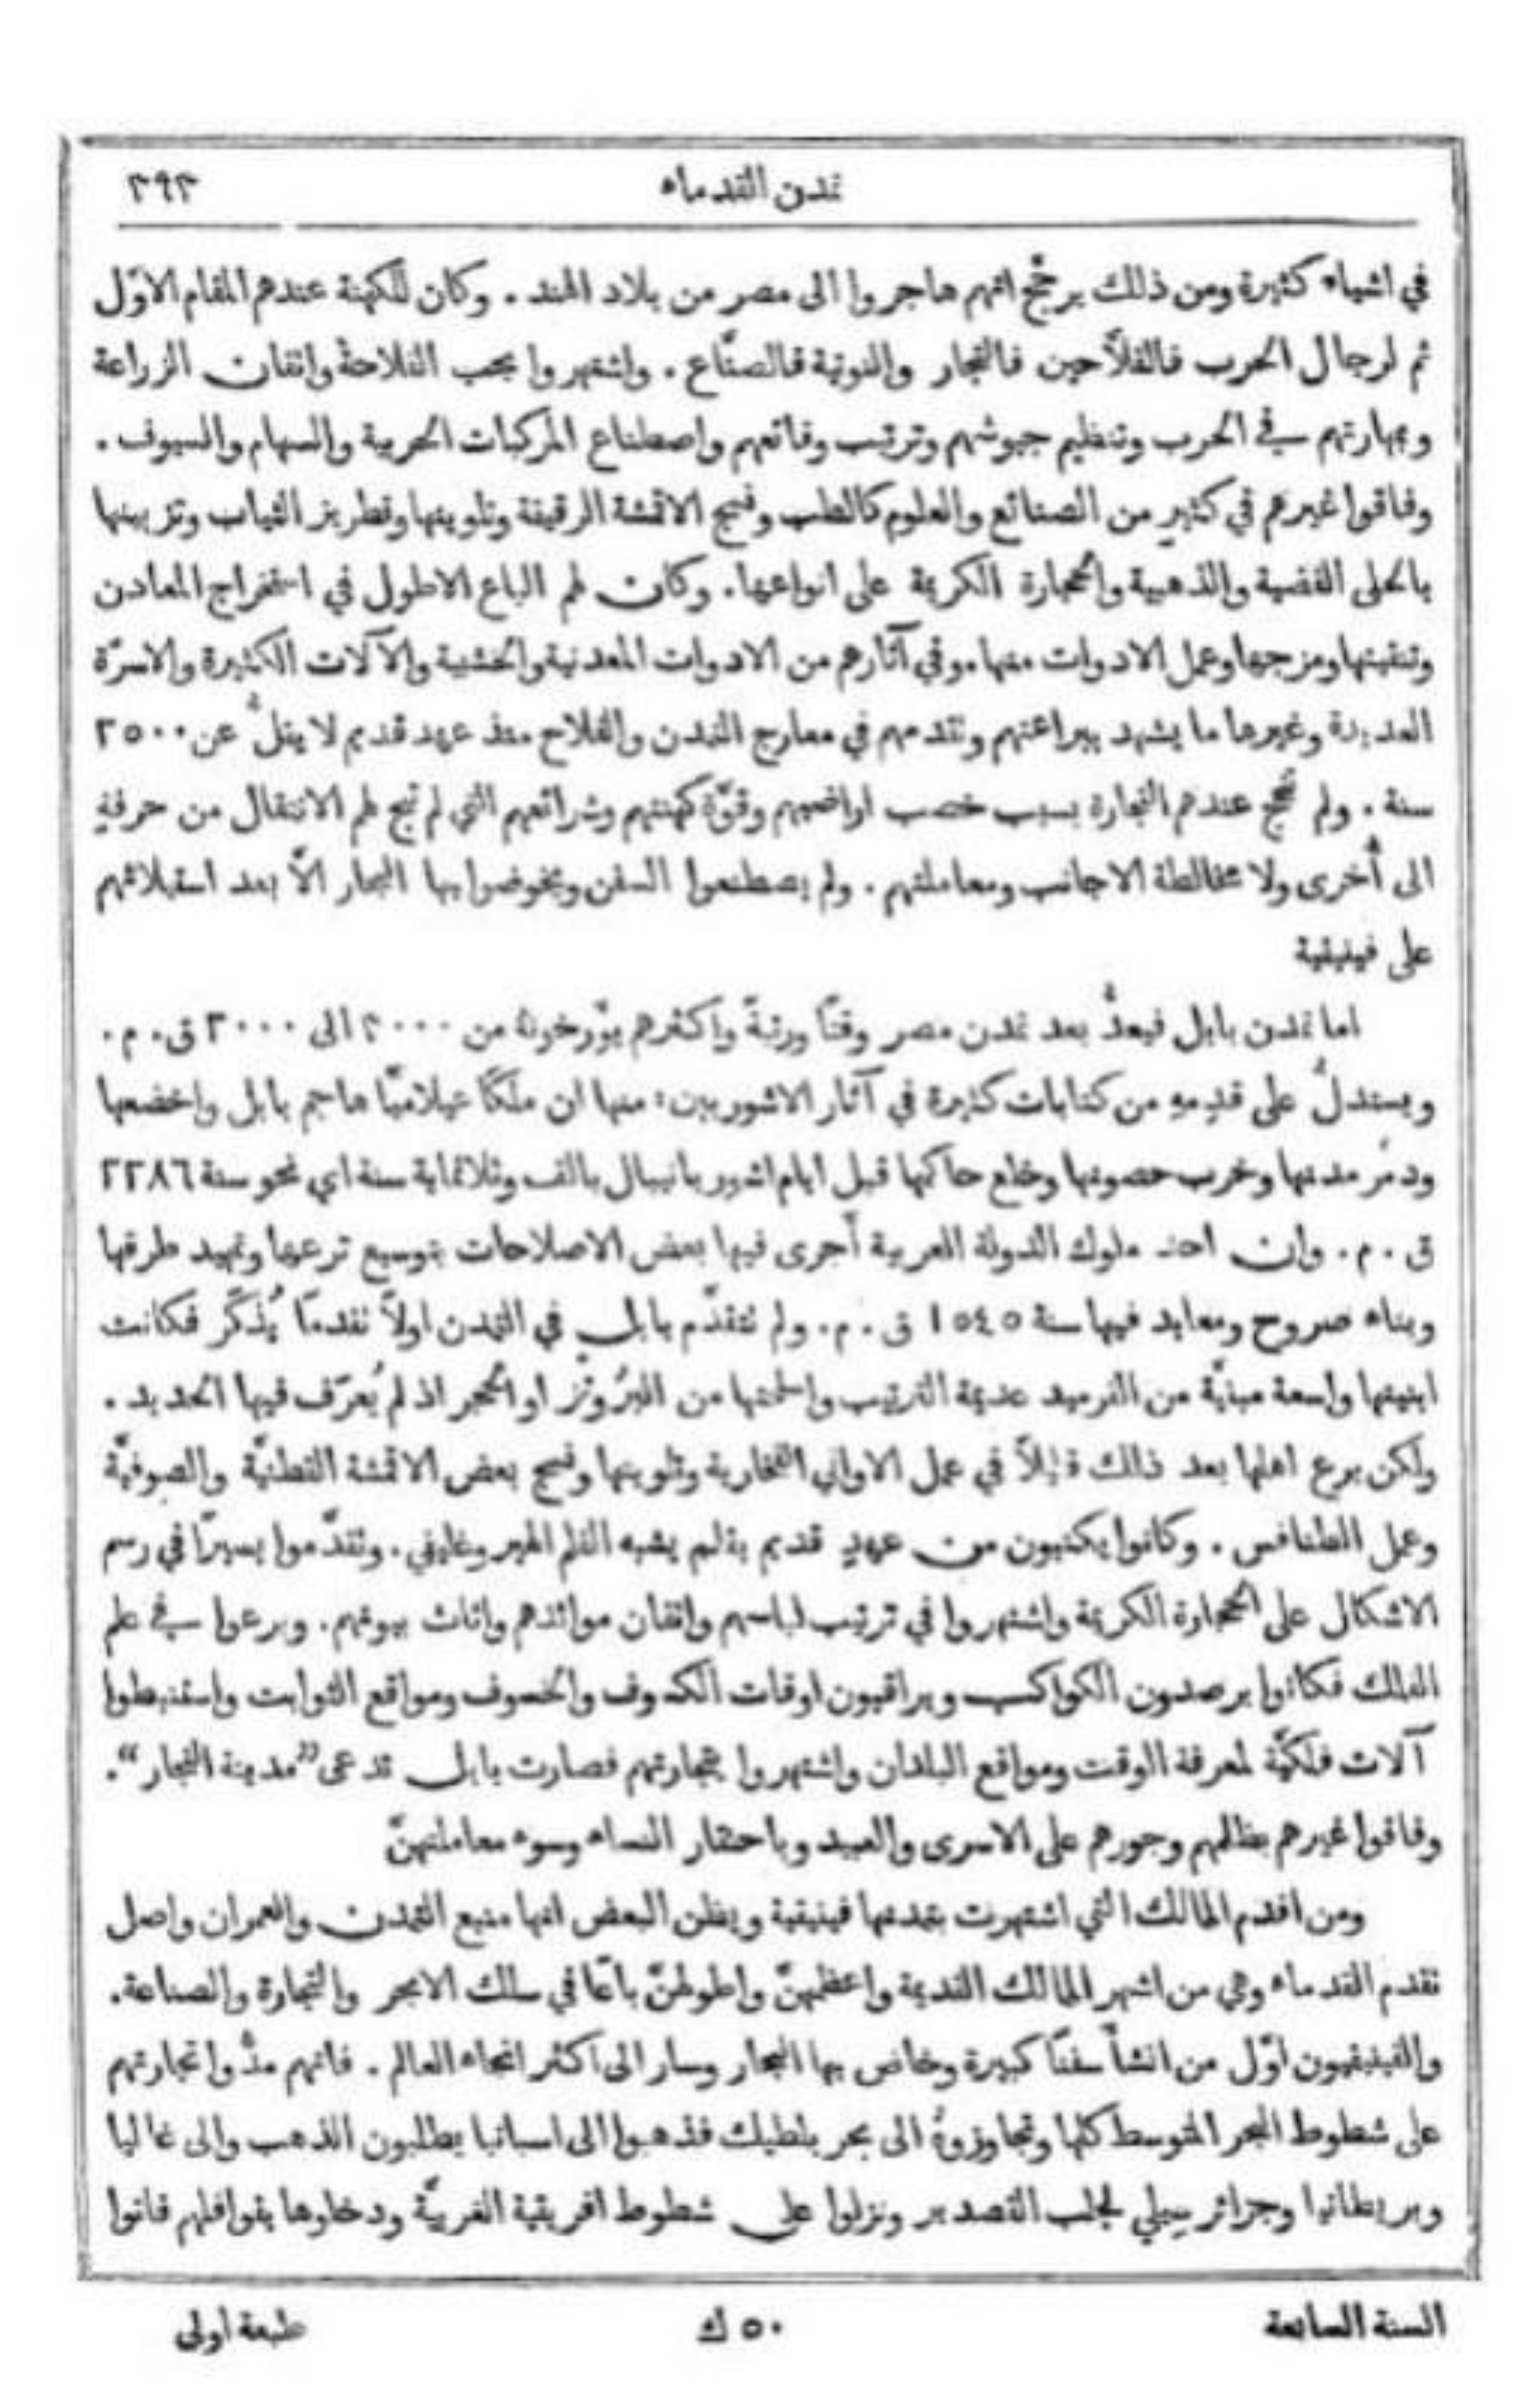 تمدن القدماء ٣٩٣
في اشياء كثيرة ومن ذلك يرجَّح انهم هاجروا الى مصر من بلاد الهند . وكان للكهنة عندهم المقام الاوّل
ثم لرجال الحرب فالفلاَّحين فالتجار والنوتية فالصنَّاع . واشتهروا بحب الفلاحة واتقان الزراعة
وبمهارتهم في الحرب وتنظيم جيوشهم وترتيب وقائعهم واصطناع المركبات الحربية والسهام والسيوف .
وفاقوا غيرهم في كثيرٍ من الصنائع والعلوم كالطب ونسج الاقمشة الرقيقة وتلوينها وتطريز الثياب وتزيينها
بالحلى الفضية والذهبية والحجارة الكريمة على انواعها. وكان لهم الباع الاطول في استخراج المعادن
وتنقيتها ومزجها وعمل الادوات منها. وفي آثارهم من الادوات المعدنية والخشبية والآلات الكثيرة والاسرَّة
العديدة وغيرها ما يشهد ببراعتهم وتقدمهم في معارج التمدن والفلاح منذ عهد قديم لا يقلُّ عن ٣٥٠٠
سنة . ولم تنجح عندهم التجارة بسبب خصب اراضيهم وقوَّة كهنتهم وشرائعهم التي لم تبح لهم الانتقال من حرفةٍ
الى أُخرى ولا مخالطة الاجانب ومعاملتهم . ولم يصطنعوا السفن ويخوضوا بها البحار الاَّ بعد استيلائهم
على فينيقية
اما تمدن بابل فيعدُّ بعد تمدن مصر وقتًا ورتبةً واكثرهم يؤَرخونهُ من ٢٠٠٠ الى ٣٠٠٠ ق . م .
ويستدلُّ على قدمهِ من كتابات كثيرة في آثار الاشوريين: منها ان ملكًا عيلاميًّا هاجم بابل واخضعها
ودمَّر مدنها وخرب حصونها وخلع حاكمها قبل ايام اشور بانيبال بالف وثلاثماية سنة اي نحو سنة ٢٢٨٦
ق . م . وان احد ملوك الدولة العربية أَجرى فيها بعض الاصلاحات بتوسيع ترعها وتمهيد طرقها
وبناء صروح ومعابد فيها سنة ١٥٤٥ ق . م. ولم تتقدَّم بابل في التمدن اولاً تقدمًا يُذكَر فكانت
ابنيتها واسعة مبنيَّة من القرميد عديمة الترتيب واسلحتها من البرُونْز او الحجر اذ لم يُعرَف فيها الحديد .
ولكن برع اهلها بعد ذلك قليلاً في عمل الاواني الفخارية وتلوينها ونسج بعض الاقمشة القطنيَّة والصوفيَّة
وعمل الطنافس . وكانوا يكتبون من عهدٍ قديم بقلم يشبه القلم الهيروغليفي . وتقدَّموا يسيرًا في رسم
الاشكال على الحجارة الكريمة واشتهروا في ترتيب لباسهم واتقان موائدهم واثاث بيوتهم. وبرعوا في علم
الفلك فكانوا يرصدون الكواكب ويراقبون اوقات الكسوف والخسوف ومواقع الثوابت واستنبطوا
آلات فلكيَّة لمعرفة الوقت ومواقع البلدان واشتهروا بتجارتهم فصارت بابل تدعى ”مدينة التجار“.
وفاقوا غيرهم بظلمهم وجورهم على الاسرى والعبيد وباحتقار النساء وسوء معاملتهنَّ
ومن اقدم الممالك التي اشتهرت بتمدنها فينيقية ويظن البعض انها منبع التمدن والعمران واصل
تقدم القدماء وهي من اشهر الممالك القديمة واعظمهنَّ واطولهنَّ باعًا في سلك الابحر والتجارة والصناعة.
والفينيقيون اوَّل من انشأَ سفنًا كبيرة وخاض بها البحار وسار الى اكثر انحاء العالم . فانهم مدُّوا تجارتهم
على شطوط البحر المتوسط كلها وتجاوزوهُ الى بحر بلطيك فذهبوا الى اسبانيا يطلبون الذهب والى غاليا
وبريطانيا وجزائر سِيلي لجلب القصدير ونزلوا على شطوط افريقية الغربيَّة ودخلوها بقوافلهم فاتوا
السنة السابعة ٥٠ ك طبعة اولى